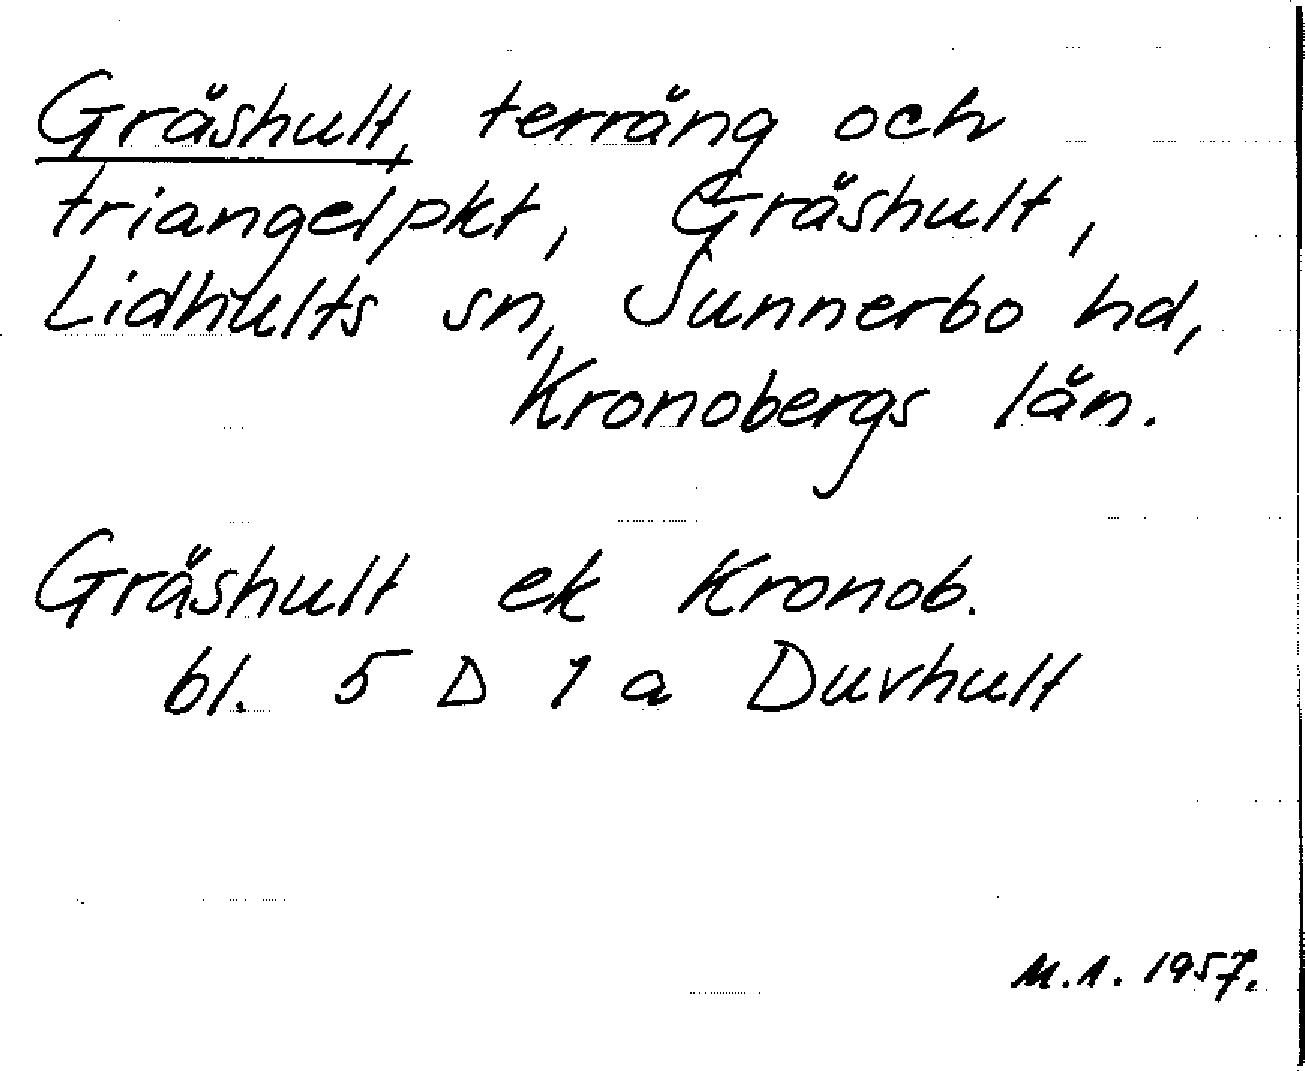 Gräshult, terräng och
triangelpkt, Gräshult,
Lidhults sn, Sunnerbo hd,
Kronobergs län.
Gräshult ek Kronob.
bl. 5 D 1 a Duvhult
M.A. 1957.